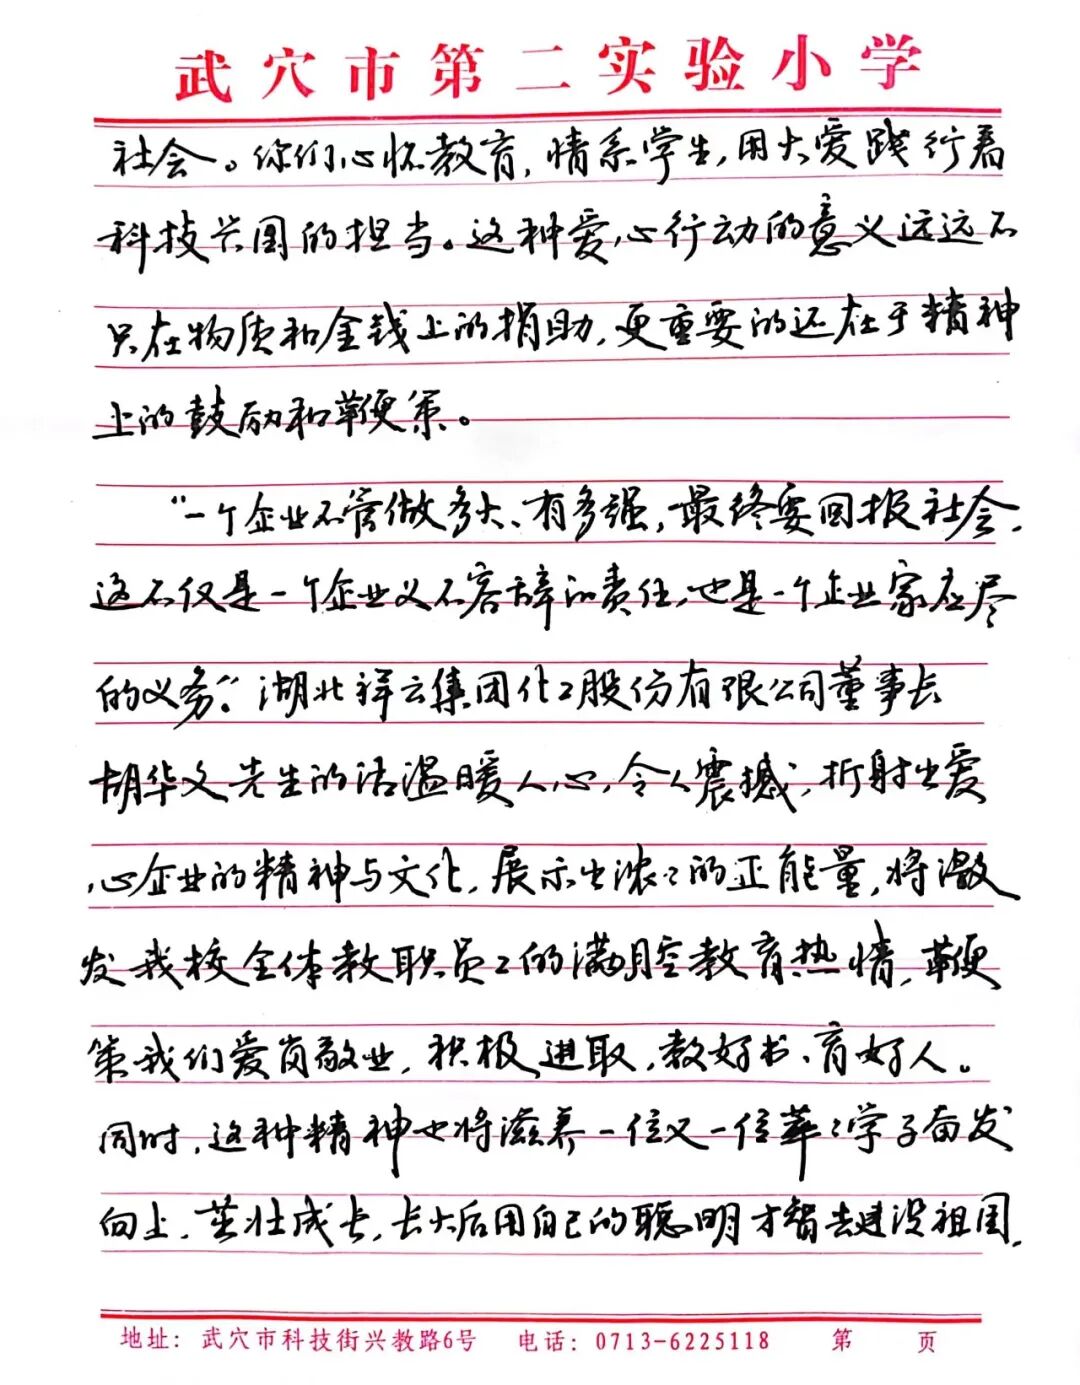 武穴市第二实验小学
社会。你们心怀教育，情系学生，用大爱践行着
科技兴国的担当。这种爱心行动的意义远远不
只在物质和金钱上的捐助，更重要的还在于精神
上的鼓励和鞭策。
“一个企业不管做多大、有多强，最终要回报社会，
这不仅是一个企业义不容辞的责任，也是一个企业家应尽
的义务。”湖北祥云集团化工股份有限公司董事长
胡华文先生的话温暖人心，令人震撼，折射出爱
心企业的精神与文化，展示出浓浓的正能量，将激
发我校全体教职员工的满腔教育热情，鞭
策我们爱岗敬业，积极进取，教好书、育好人。
同时，这种精神也将滋养一位又一位莘莘学子奋发
向上，茁壮成长，长大后用自己的聪明才智去建设祖国，
地址：武穴市科技街兴教路6号 电话：0713-6225118 第 页